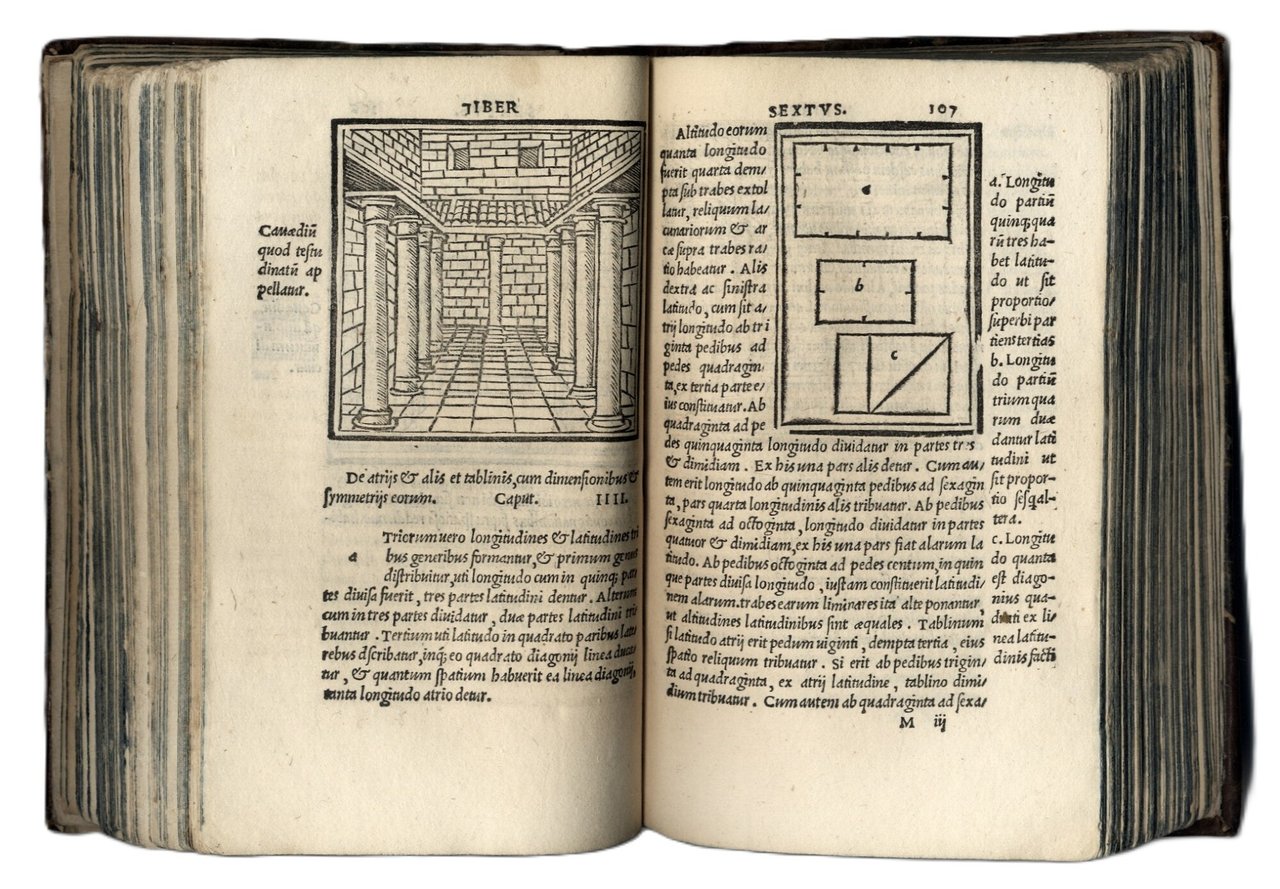 JIBER
Cauædiũ
quod testu
dinatũ ap
pellatur.
De atrijs & alis et tablinis, cum dimensionibus &
symmetrijs eorum. Caput. IIII.
Triorum uero longitudines & latitudines tri
a bus generibus formantur, & primum genus
distribuitur, uti longitudo cum in quinq; par
tes diuisa fuerit, tres partes latitudini dentur. Alterum
cum in tres partes diuidatur, duæ partes latitudini tri
buantur. Tertium uti latitudo in quadrato paribus late
rebus dscribatur, inq; eo quadrato diagonij linea ducas
tur, & quantum spatium habuerit ea linea diagonij,
tanta longitudo atrio detur.
SEXTVS. 107
Altitudo eorum
quanta longitudo
fuerit quarta dem/
pta sub trabes extol
latur, reliquum la/
cunariorum & ar
cæ supra trabes ra/
tio habeatur. Alis
dextra ac sinistra
latitudo, cum sit a/
trij longitudo ab tri
ginta pedibus ad
pedes quadragin/
ta, ex tertia parte e/
ius constituatur. Ab
quadraginta ad pe
des quinquaginta longitudo diuidatur in partes tres
& dimidiam. Ex his una pars alis detur. Cum au/
tem erit longitudo ab quinquaginta pedibus ad sexagin
ta, pars quarta longitudinis alis tribuatur. Ab pedibus
sexaginta ad octoginta, longitudo diuidatur in partes
quatuor & dimidiam, ex his una pars fiat alarum la
titudo. Ab pedibus octoginta ad pedes centum, in quin
que partes diuisa longitudo, iustam constituerit latitudi/
nem alarum. trabes earum liminares ita alte ponantur,
ut altitudines latitudinibus sint æquales. Tablinum
si latitudo atrij erit pedum uiginti, dempta tertia, eius
spatio reliquum tribuatur. Si erit ab pedibus trigin/
ta ad quadraginta, ex atrij latitudine, tablino dimi/
dium tribuatur. Cum autem ab quadraginta ad sexa/
M iij
a
b
c
a. Longitu
do partiũ
quinq; qua
rũ tres ha-
bet latitu-
do ut sit
proportio/
superbi par
tiens tertias
b. Longitu
do partiũ
trium qua
rum duæ
dantur lati
tudini ut
sit propor-
tio sesqal-
tera.
c. Longitu
do quanta
est diago-
nius qua-
drati ex li/
nea latitu-
dinis facti